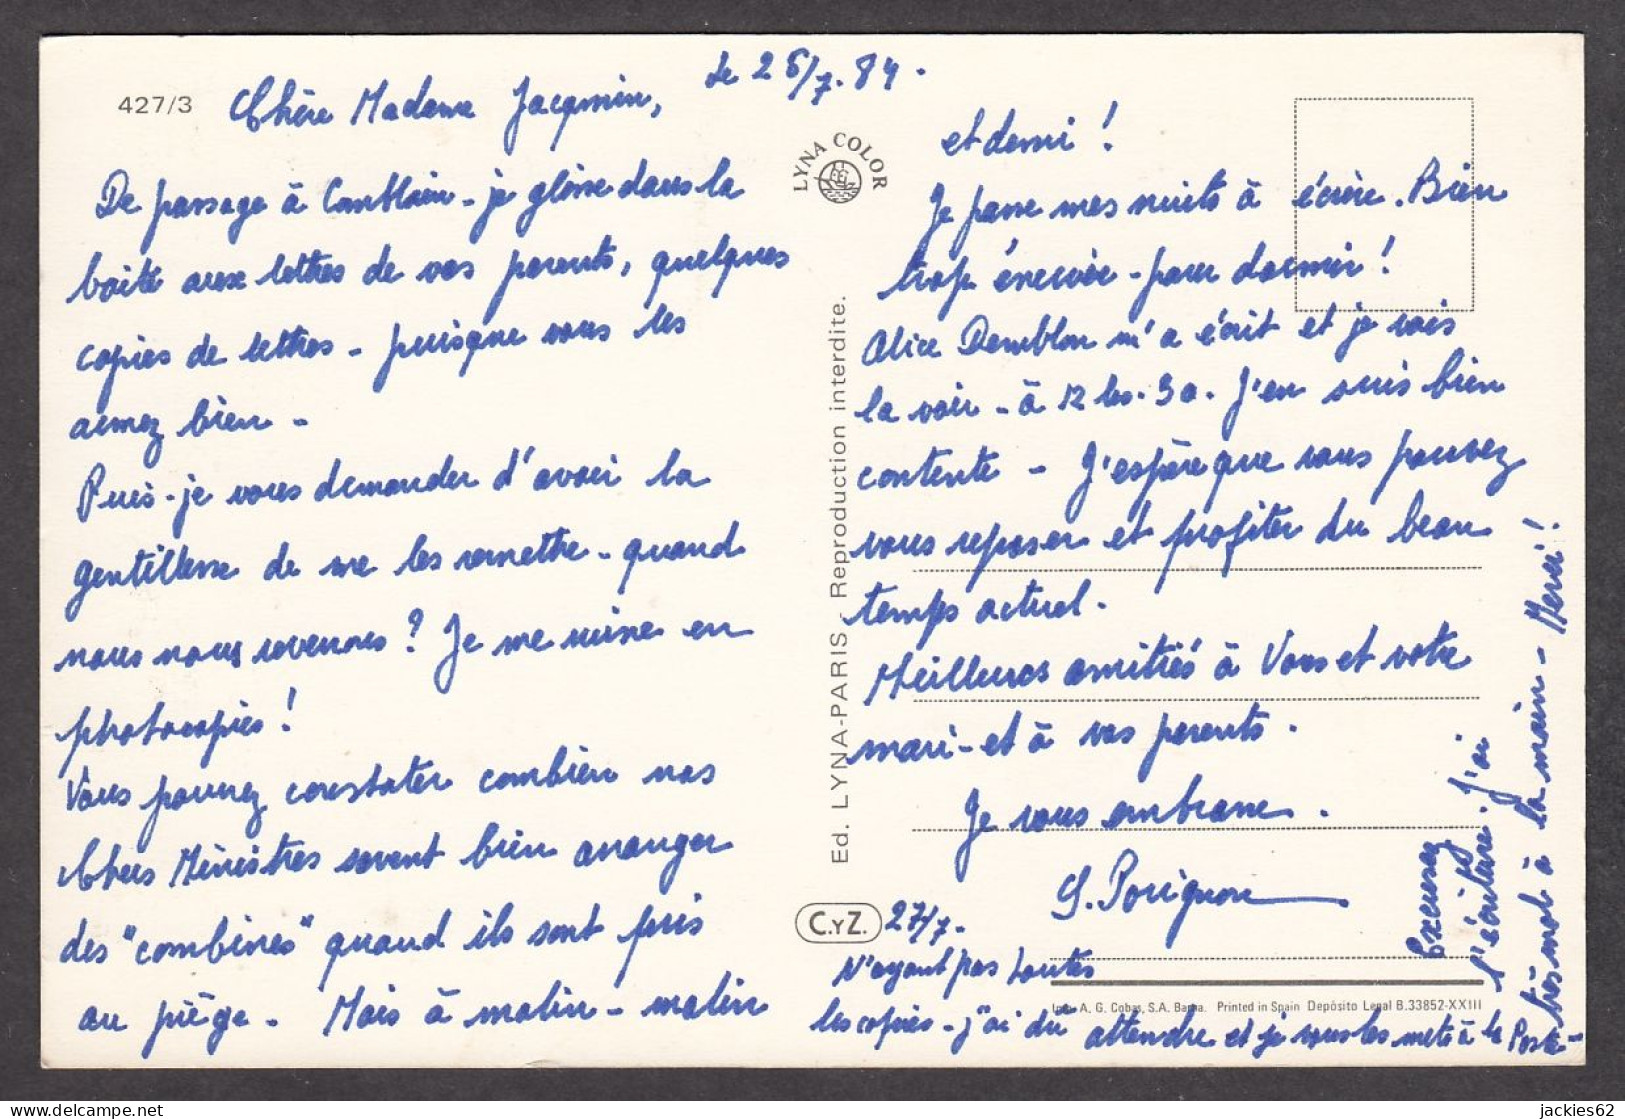 427/3
Le 26/7.84.
Chère Madame Jacqmin,
De passage à Comblain - je glisse dans la
boîte aux lettres de vos parents, quelques
copies de lettres - puisque vous les
aimez bien -
Puis-je vous demander d'avoir la
gentillesse de me les remettre - quand
nous nous reverrons ? Je me ruine en
photocopies !
Vous pourrez constater combien nos
Chers Ministres savent bien arranger
des "combines" quand ils sont pris
au piège - Mais à malin - malin
LYNA COLOR
Ed. LYNA-PARIS - Reproduction interdite.
C.YZ.
et demi !
Je passe mes nuits à écrire. Bien
trop énervée - pour dormir !
Alice Demblon m'a écrit et je vais
la voir - à 12 hs. 30. J'en suis bien
contente - J'espère que vous pouvez
vous reposer et profiter du beau
temps actuel.
Meilleures amitiés à Vous et votre
mari - et à vos parents.
Je vous embrasse.
S. Pourignon
27/7.
N'ayant pas toutes
les copies - j'ai du attendre et je vous les mets à la Poste -
Excusez
l'écriture. J'ai
très mal à la main - Merci !
Impr. A. G. Cobas, S.A. Barna. Printed in Spain Depósito Legal B.33852-XXIII
jackies62